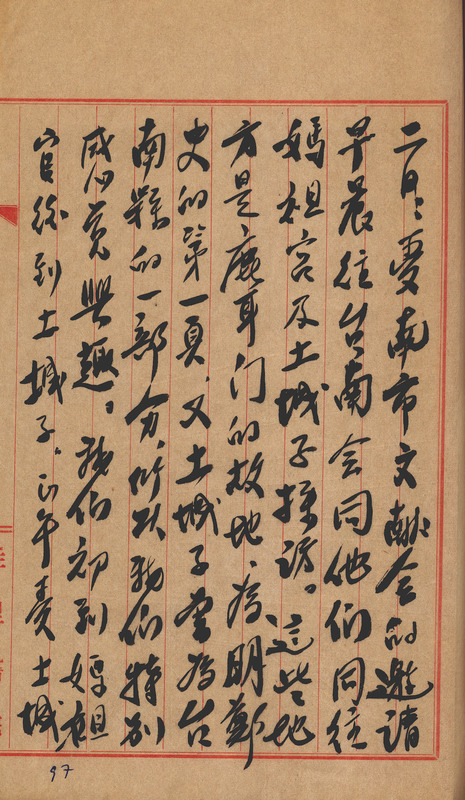 二月、受南市文献会的邀请
早晨往台南会同他们同往
妈祖宫及土城子採訪。這些地
方是鹿耳门的故地、为明郑
史的第一頁、又土城子曾为台
南縣的一部分、所以我们特别
感覚興趣。我们初到妈祖
宮後到土城子。正午土城
97